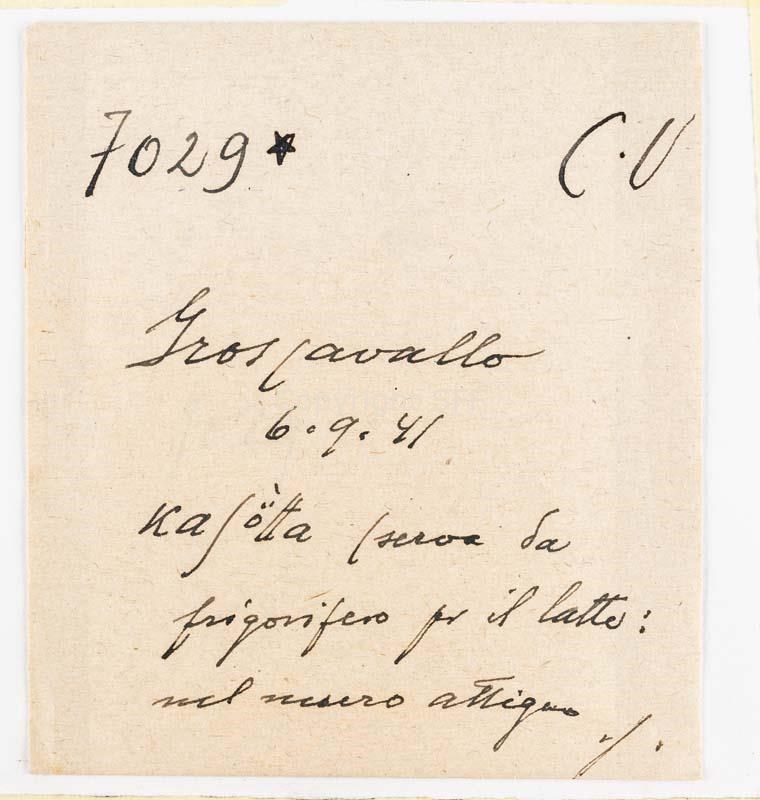 7029* C.V
Groscavallo
6.9.41
kaʃö̀tta (serve da
frigorifero pr il latte:
nel muro attiguo
./.